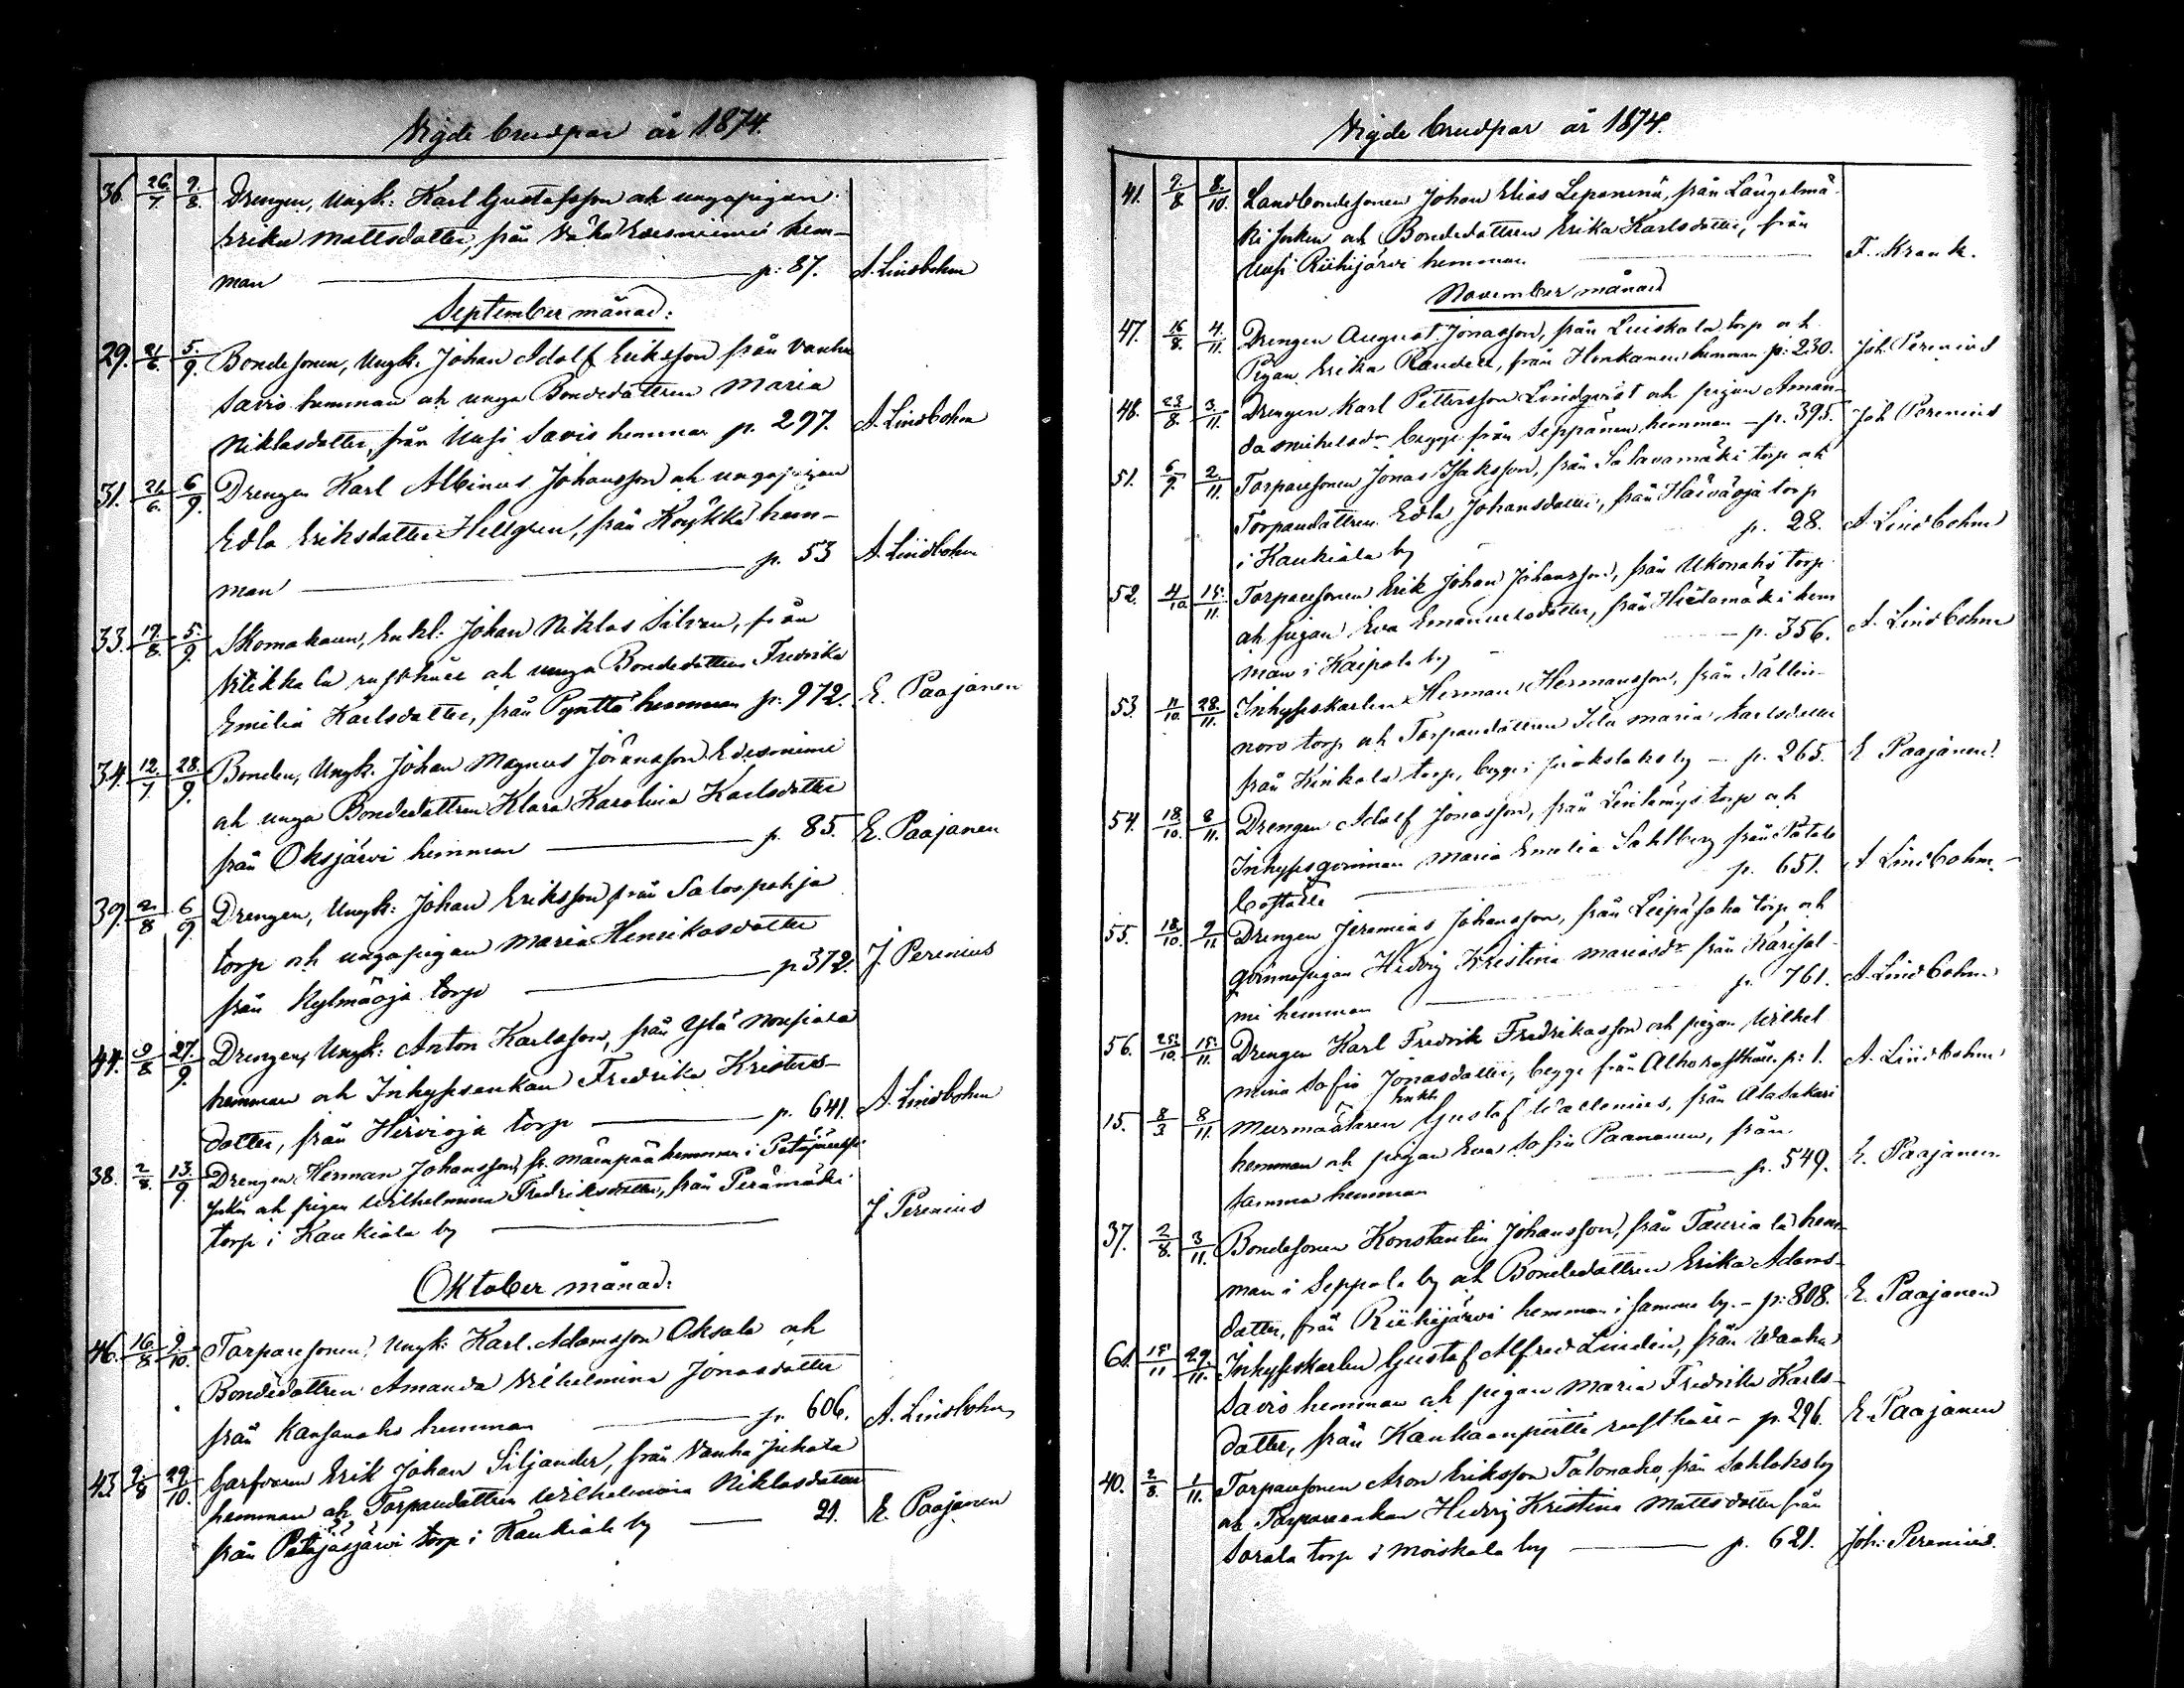 Vigde brudpar år 1874.
36. 26/7 9/8. Drengen, Ungk: Karl Gustafsson och ungapigan
Erika Mattsdotter, från Vähä Edesniemi hem-
man p: 87. A. Lindbohm
September månad:
29. 21/6. 5/9. Bondesonen, Ungk. Johan Adolf Eriksson från Vanha
Savio hemman och unga Bondedottren Maria
Niklasdotter, från Uusi Savio hemman p. 297. A. Lindbohm
31. 21/6. 6/9. Drengen Karl Albinus Johansson och ungapigan
Edla Eriksdotter Hellgren, från Köykkä hem-
man p. 53 A. Lindbohm
33. 17/8. 5/9. Skomakaren, Enkl: Johan Niklas Silvan, från
Uttikkala rusthåll och unga Bondedottren Fredrika
Emilia Karlsdotter, från Pynttä hemman p. 972. E. Paajanen
34. 12/7. 28/9. Bonden, Ungk. Johan Magnus Jöransson Edesniemi
och unga Bondedottren Klara Karolina Karlsdotter
från Oksjärvi hemman p. 85. E. Paajanen
39. 2/8 6/9. Drengen, Ungk: Johan Eriksson från Salospohja
torp och ungapigan Maria Henriksdotter
från Kylmäoja torp p 372. J. Perenius
44. 9/8 27/9. Drengen, Ungk: Anton Karlsson, från Ylä Nousiala
hemman och Inhysesenkan Fredrika Kristers-
dotter, från Hervioja torp p. 641. A. Lindbohm
38. 2/8. 13/9. Drengen Herman Johansson, fr. Mäenpää hemman i Petäjävesi
och pigan Wilhelmina Fredriksdotter, från Perämäki
torp i Kaukiala by J Perenius
Oktober månad:
46. 16/8. 9/10. Torparesonen, Ungk: Karl Adamsson Oksala och
Bondedottren Amanda Vilhelmina Jonasdotter
från Kansanaho hemman p. 606. A. Lindbohm
43. 9/8 29/10. Garfvaren Erik Johan Siljander, från Vanha Jukola
hemman och Torparedottren Wilhelmina Niklasdotter
från Petäjäsjärvi torp i Kaukiala by 21. E. Paajanen
Vigde brudpar år 1874.
41. 9/8. 8/10. Landbondesonen Johan Elias Leponiemi, från Längelmä-
ki socken och Bondedottren Erika Karlsdotter, från
Uusi Riihijärvi hemman F. Krank.
November månad
47. 16/8. 4/11. Drengen August Jonasson, från Luiskala torp och
Pigan Erika Randell, från Honkanen hemman p: 230. Joh. Perenius
48. 23/8. 3/11. Drengen Karl Pettersson Lindqvist och pigan Aman-
da Mickelsdr begge från Seppänen hemman - p. 395. Joh Perenius
51. 6/9. 2/11. Torparesonen Jonas Isaksson, från Salavamäki torp och
Torparedottren Edla Johansdotter, från Haivaoja torp
i Kaukiala by p. 28. A. Lindbohm
52. 4/10. 15/11. Torparesonen Erik Johan Johansson, från Ukonaho torp
och pigan Eva Emanuelsdotter, från Hietamäki hem
man i Kaipola by p. 356. A. Lindbohm
53. 11/10. 28/11. Inhyseskarlen Herman Hermansson, från Sällin-
noro torp och Torparedottren Ida Maria Karlsdotter
från Kinkala torp, begge i Juokslaks by - p. 265. E Paajanen
54. 18/10. 8/11. Drengen Adolf Jonasson, från Leitämys torp och
Inhysesqvinnan Maria Emelia Sahlberg från Pätale
boställe p. 651. A Lindbohm
55. 18/10. 9/11 Drengen Jeremias Johansson, från Leipäsaha torp och
qvinnspigan Hedvig Kristina Mariasdr från Karisal-
mi hemman p. 761. A. Lindbohm
56. 25/10. 15/11. Drengen Karl Fredrik Fredriksson och pigan Wilhel
mina Sofia Jonasdotter, begge från Alho rusthåll. p: 1. A. Lindbohm
15. 8/3 8/11. Murmästaren Enkl. Gustaf Wallenius, från Alasakari
hemman och pigan Eva Sofia Paananen, från
samma hemman p. 549. E. Paajanen
37. 2/8. 3/11. Bondesonen Konstantin Johansson, från Tauriala hem-
man i Seppola by och Bondedottren Erika Adams-
dotter, från Riihijärvi hemman i samma by. - p: 808. E. Paajanen
61. 15/11 29/11. Inhyseskarlen Gustaf Alfred Lindén, från Wanha
Savio hemman och pigan Maria Fredrika Karls-
dotter, från Kauhaanpertti rusthåll - p. 296. E. Paajanen
40. 2/8. 1/11. Torparesonen Aron Eriksson Talonaho, från Sahlaks by
och Torpareenkan Hedvig Kristina Mattsdotter från
Sorala torp i Moiskala by p. 621. Joh: Perenius.